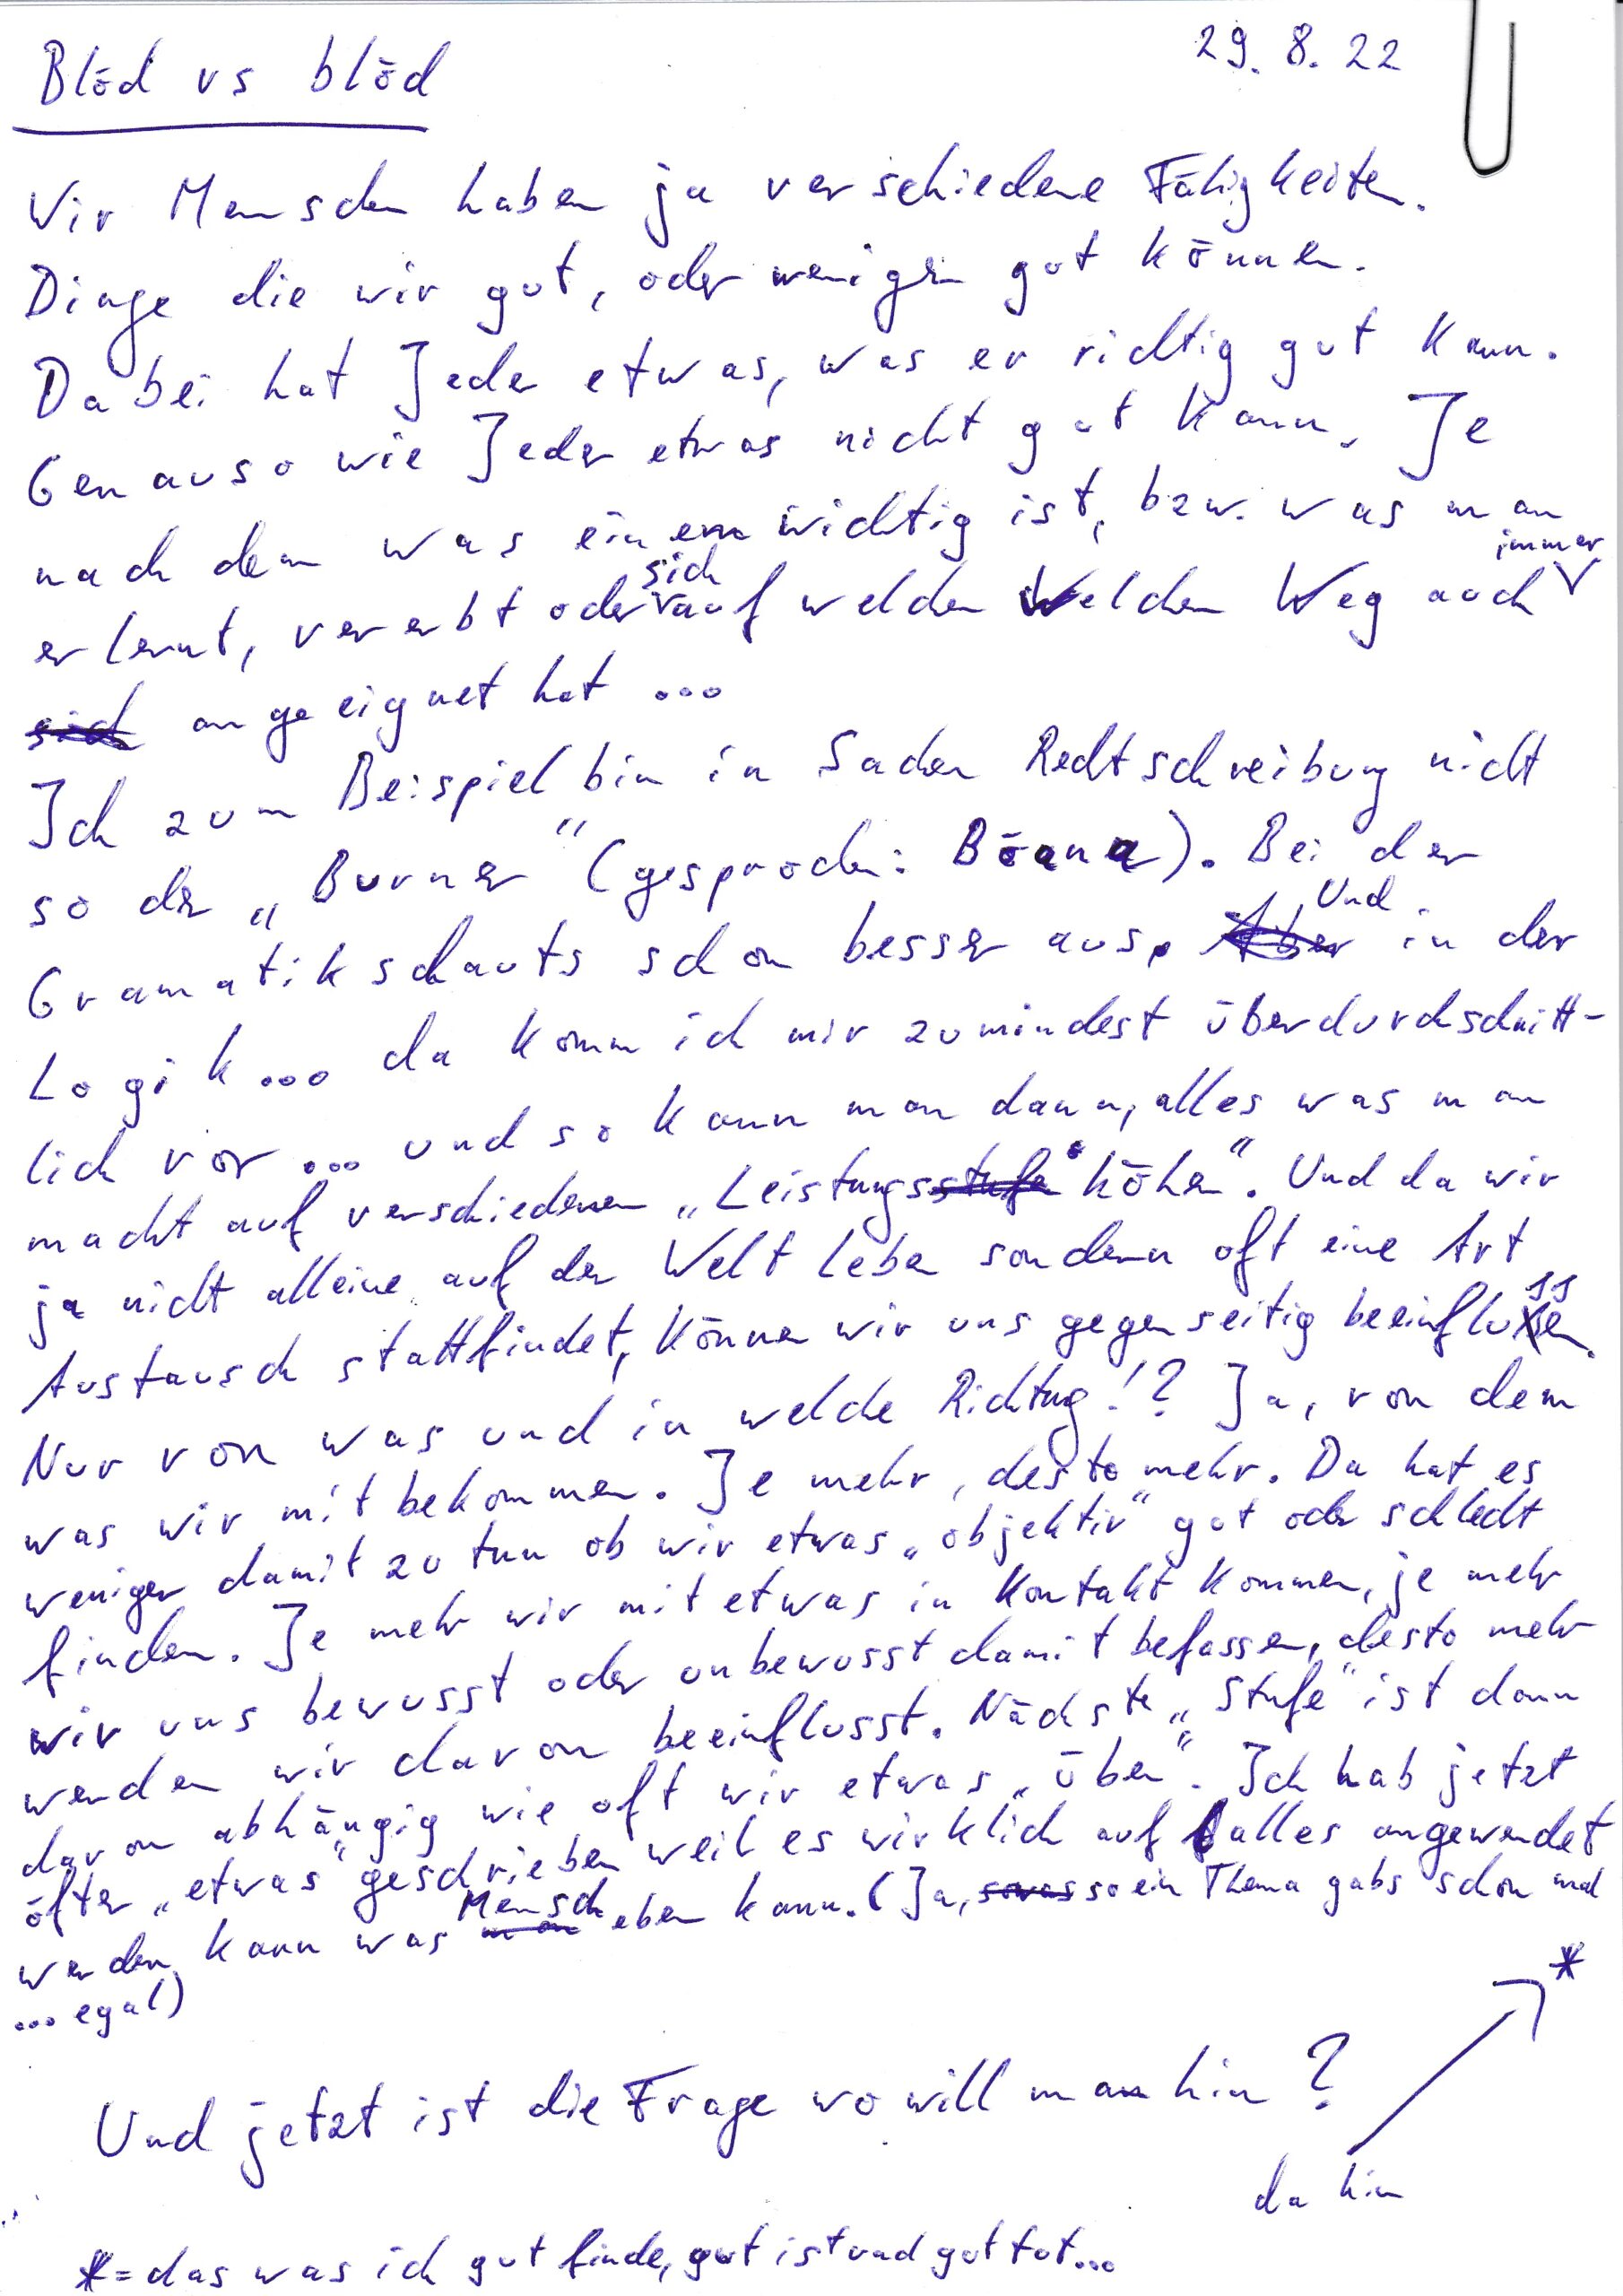 29.8.22
Blöd vs blöd
Wir Menschen haben ja verschiedene Fähigkeiten.
Dinge die wir gut, oder weniger gut können.
Dabei hat Jeder etwas, was er richtig gut kann.
Genauso wie Jeder etwas nicht gut kann. Je
nach dem was einem wichtig ist, bzw. was man
erlernt, vererbt oder sich auf welchen welchen Weg auch immer
sich angeeignet hat ...
Ich zum Beispiel bin in Sachen Rechtschreibung nicht
so der „Burner" (gesprochen: Böana). Bei der
Gramatik schauts schon besser aus. Aber Und in der
Logik... da komm ich mir zumindest überdurchschnitt-
lich vor ... und so kann man dann, alles was man
macht auf verschiedenen „Leistungsstufe höhen". Und da wir
ja nicht alleine auf der Welt leben sondern oft eine Art
Austausch stattfindet, können wir uns gegenseitig beeinflussen.
Nur von was und in welche Richtung!? Ja, von dem
was wir mitbekommen. Je mehr, desto mehr. Da hat es
weniger damit zu tun ob wir etwas „objektiv" gut oder schlecht
finden. Je mehr wir mit etwas in Kontakt kommen, je mehr
wir uns bewusst oder unbewusst damit befassen, desto mehr
werden wir davon beeinflusst. Nächste „Stufe" ist dann
davon abhängig wie oft wir etwas „üben". Ich hab jetzt
öfter „etwas" geschrieben weil es wirklich auf alles angewendet
werden kann was man Mensch eben kann. (Ja, sowas so ein Thema gabs schon mal
... egal)
*
Und jetzt ist die Frage wo will man hin?
da hin
*= das was ich gut finde, gut ist und gut tut...